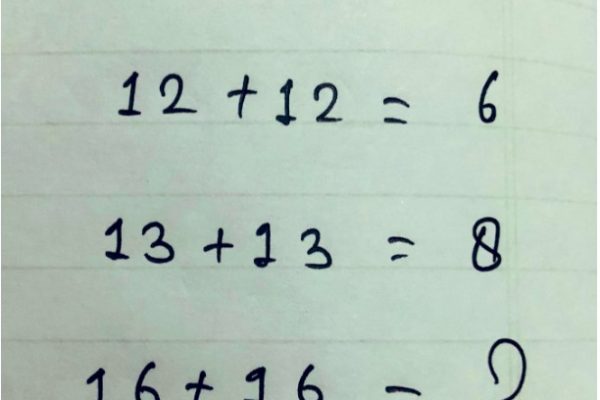 12 + 12 = 6
13 + 13 = 8
16 + 16 = ?